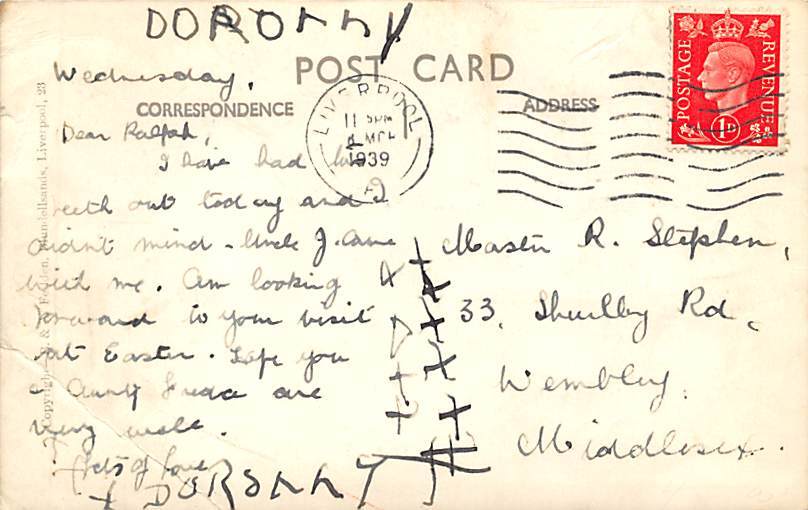 DOROTHY
POST CARD
CORRESPONDENCE
ADDRESS
POSTAGE
REVENUE
1D
LIVERPOOL
1939
A
Wednesday,
Dear Ralph,
I have had two
teeth out today and I
didn't mind. Uncle J. came
with me. Am looking
forward to your visit
at Easter. Hope you
& Aunty are
very well.
Lots of love
DOROTHY
Master R. Stephen,
33, Rd,
Wembley,
Middlesex.
Liverpool, 23
Copyright